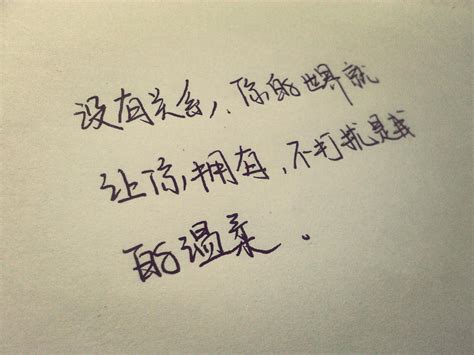 没有关系,你的世界就
让你拥有,不打扰是我
的温柔.